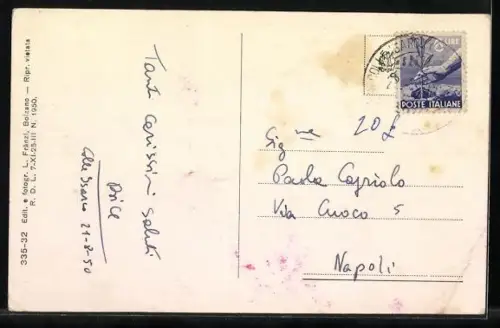 335-32 Edit. e fotogr. L. Fränzl, Bolzano — Ripr. vietata
R. D. L. 7-XI-25-III N. 1950.
Tanti carissimi saluti
Colle Isarco 21-8-50
LIRE
POSTE ITALIANE
20 £
Sig
Paola Capriolo
Via Cuoco 5
Napoli